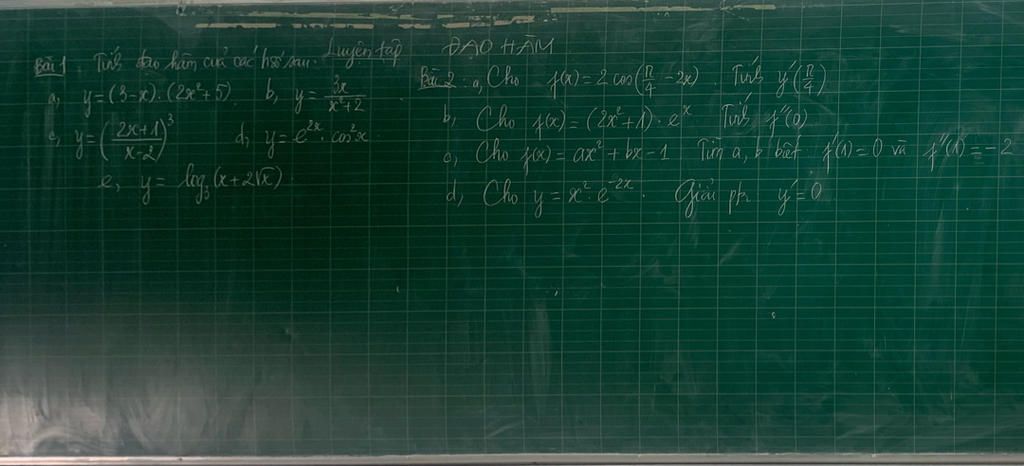 Luyện tập ĐẠO HÀM
Bài 1. Tính đạo hàm của các hsố sau.
a, y = (3-x).(2x²+5) b, y = 3x/(x²+2)
c, y = ((2x+1)/(x-2))³ d, y = e^(2x).cos²x
e, y = log₃(x+2√x)
Bài 2. a, Cho f(x) = 2cos(π/4 - 2x). Tính y'(π/4)
b, Cho f(x) = (2x²+1).e^x Tính f''(0)
c, Cho f(x) = ax² + bx - 1 Tìm a, b biết f'(1) = 0 và f''(1) = -2
d, Cho y = x².e^(-2x). Giải pt. y' = 0